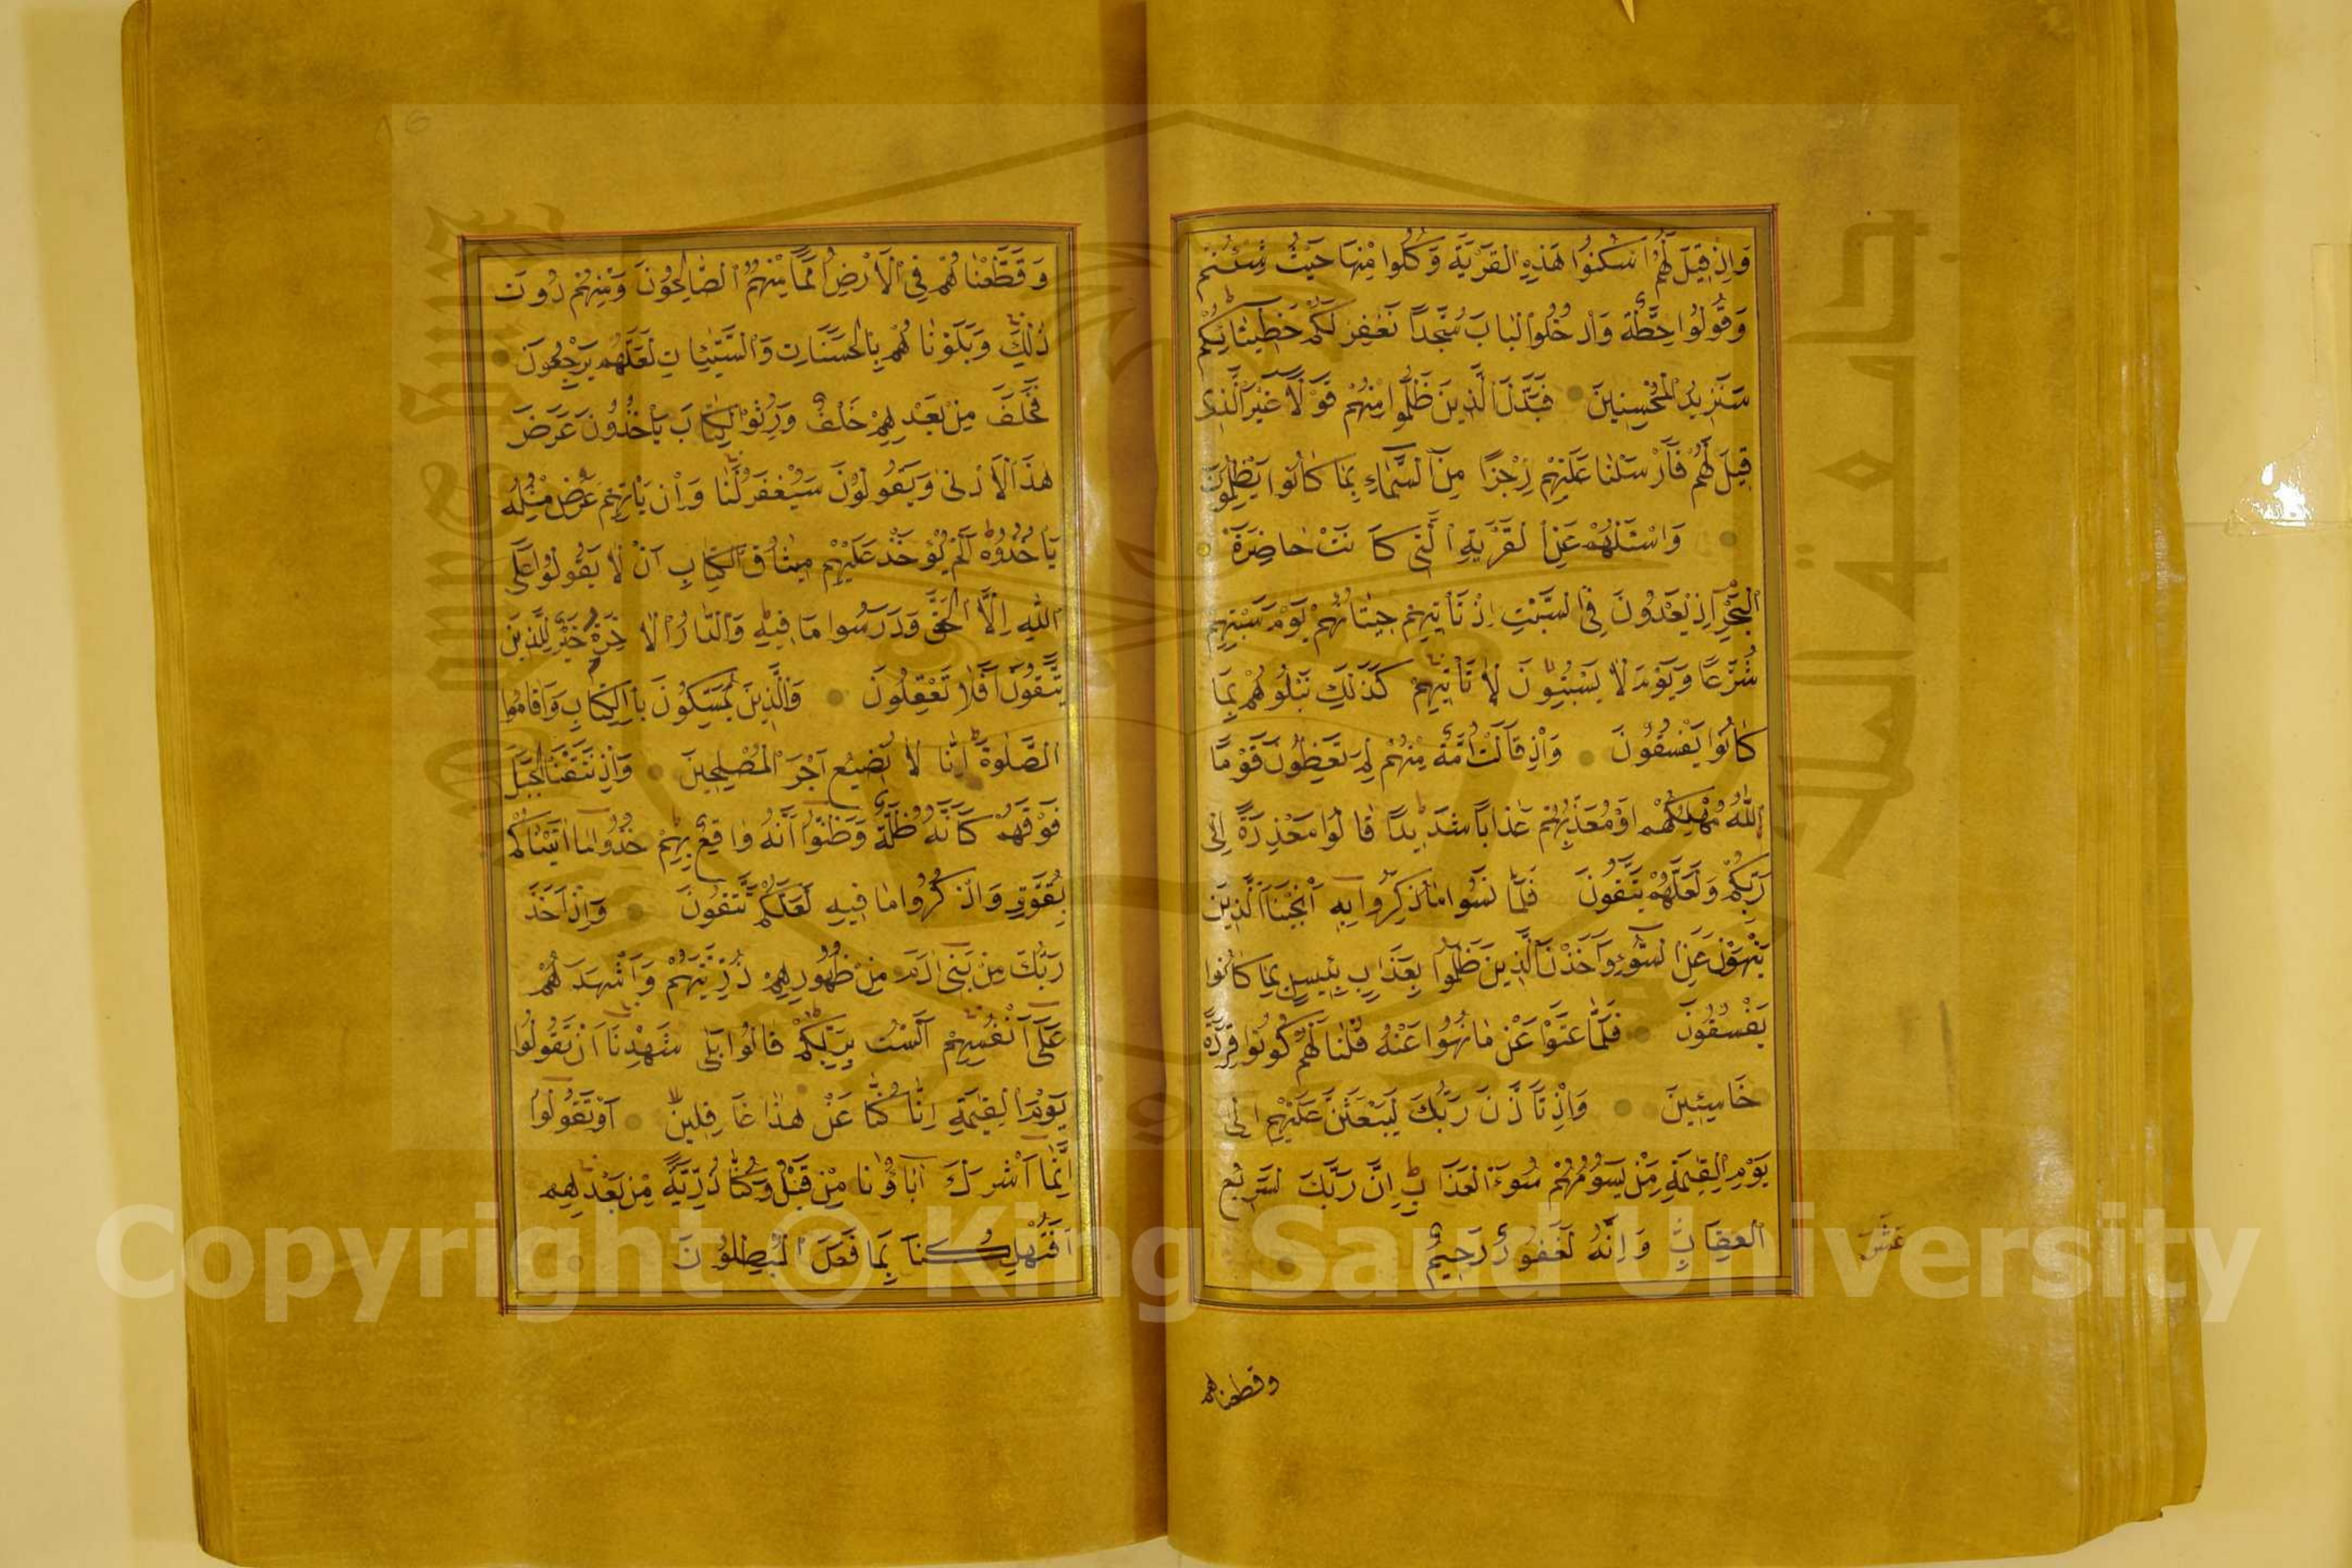 وَاِذْ قِيلَ لَهُمُ اسْكُنُوا هٰذِهِ الْقَرْيَةَ وَكُلُوا مِنْهَا حَيْثُ شِئْتُمْ
وَقُولُوا حِطَّةٌ وَادْخُلُوا الْبَابَ سُجَّدًا نَغْفِرْ لَكُمْ خَطِيئَاتِكُمْ
سَنَزِيدُ الْمُحْسِنِينَ فَبَدَّلَ الَّذِينَ ظَلَمُوا مِنْهُمْ قَوْلًا غَيْرَ الَّذِى
قِيلَ لَهُمْ فَاَرْسَلْنَا عَلَيْهِمْ رِجْزًا مِنَ السَّمَاءِ بِمَا كَانُوا يَظْلِمُونَ
وَاسْئَلْهُمْ عَنِ الْقَرْيَةِ الَّتِى كَانَتْ حَاضِرَةَ
الْبَحْرِ اِذْ يَعْدُونَ فِى السَّبْتِ اِذْ تَأْتِيهِمْ حِيتَانُهُمْ يَوْمَ سَبْتِهِمْ
شُرَّعًا وَيَوْمَ لَا يَسْبِتُونَ لَا تَأْتِيهِمْ كَذٰلِكَ نَبْلُوهُمْ بِمَا
كَانُوا يَفْسُقُونَ وَاِذْ قَالَتْ اُمَّةٌ مِنْهُمْ لِمَ تَعِظُونَ قَوْمًا
اللّٰهُ مُهْلِكُهُمْ اَوْ مُعَذِّبُهُمْ عَذَابًا شَدِيدًا قَالُوا مَعْذِرَةً اِلٰى
رَبِّكُمْ وَلَعَلَّهُمْ يَتَّقُونَ فَلَمَّا نَسُوا مَا ذُكِّرُوا بِهِ اَنْجَيْنَا الَّذِينَ
يَنْهَوْنَ عَنِ السُّوءِ وَاَخَذْنَا الَّذِينَ ظَلَمُوا بِعَذَابٍ بَئِيسٍ بِمَا كَانُوا
يَفْسُقُونَ فَلَمَّا عَتَوْا عَنْ مَا نُهُوا عَنْهُ قُلْنَا لَهُمْ كُونُوا قِرَدَةً
خَاسِئِينَ وَاِذْ تَاَذَّنَ رَبُّكَ لَيَبْعَثَنَّ عَلَيْهِمْ اِلٰى
يَوْمِ الْقِيٰمَةِ مَنْ يَسُومُهُمْ سُوءَ الْعَذَابِ اِنَّ رَبَّكَ لَسَرِيعُ
الْعِقَابِ وَاِنَّهُ لَغَفُورٌ رَحِيمٌ
عشر
وقطعناهم
وَقَطَّعْنَاهُمْ فِى الْاَرْضِ اُمَمًا مِنْهُمُ الصَّالِحُونَ وَمِنْهُمْ دُونَ
ذٰلِكَ وَبَلَوْنَاهُمْ بِالْحَسَنَاتِ وَالسَّيِّئَاتِ لَعَلَّهُمْ يَرْجِعُونَ
فَخَلَفَ مِنْ بَعْدِهِمْ خَلْفٌ وَرِثُوا الْكِتَابَ يَأْخُذُونَ عَرَضَ
هٰذَا الْاَدْنٰى وَيَقُولُونَ سَيُغْفَرُ لَنَا وَاِنْ يَأْتِهِمْ عَرَضٌ مِثْلُهُ
يَأْخُذُوهُ اَلَمْ يُؤْخَذْ عَلَيْهِمْ مِيثَاقُ الْكِتَابِ اَنْ لَا يَقُولُوا عَلَى
اللّٰهِ اِلَّا الْحَقَّ وَدَرَسُوا مَا فِيهِ وَالدَّارُ الْاٰخِرَةُ خَيْرٌ لِلَّذِينَ
يَتَّقُونَ اَفَلَا تَعْقِلُونَ وَالَّذِينَ يُمَسِّكُونَ بِالْكِتَابِ وَاَقَامُوا
الصَّلٰوةَ اِنَّا لَا نُضِيعُ اَجْرَ الْمُصْلِحِينَ وَاِذْ نَتَقْنَا الْجَبَلَ
فَوْقَهُمْ كَاَنَّهُ ظُلَّةٌ وَظَنُّوا اَنَّهُ وَاقِعٌ بِهِمْ خُذُوا مَا اٰتَيْنَاكُمْ
بِقُوَّةٍ وَاذْكُرُوا مَا فِيهِ لَعَلَّكُمْ تَتَّقُونَ وَاِذْ اَخَذَ
رَبُّكَ مِنْ بَنِى اٰدَمَ مِنْ ظُهُورِهِمْ ذُرِّيَّتَهُمْ وَاَشْهَدَهُمْ
عَلٰى اَنْفُسِهِمْ اَلَسْتُ بِرَبِّكُمْ قَالُوا بَلٰى شَهِدْنَا اَنْ تَقُولُوا
يَوْمَ الْقِيٰمَةِ اِنَّا كُنَّا عَنْ هٰذَا غَافِلِينَ اَوْ تَقُولُوا
اِنَّمَا اَشْرَكَ اٰبَاؤُنَا مِنْ قَبْلُ وَكُنَّا ذُرِّيَّةً مِنْ بَعْدِهِمْ
اَفَتُهْلِكُنَا بِمَا فَعَلَ الْمُبْطِلُونَ
Copyright © King Saud University